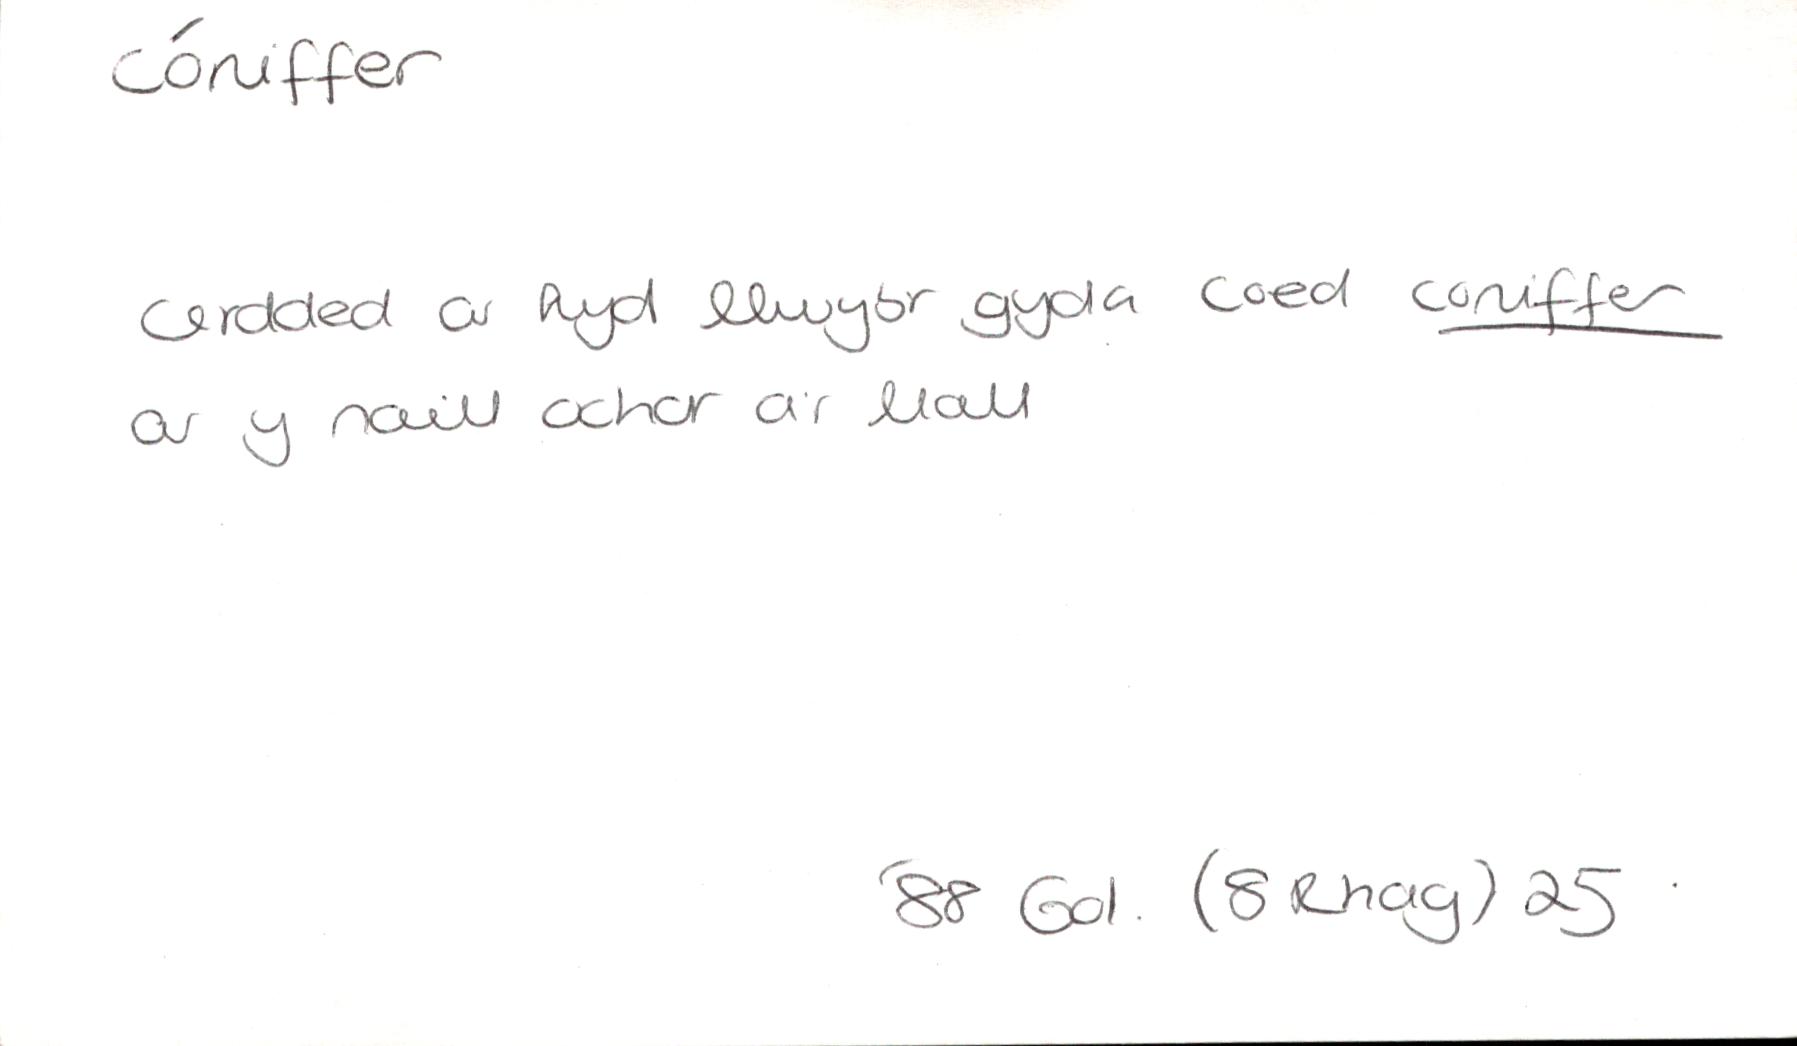 cóniffer
cerdded ar hyd llwybr gyda coed coniffer
ar y naill ochor a'r llall
'88 Gol. (8 Rhag) 25